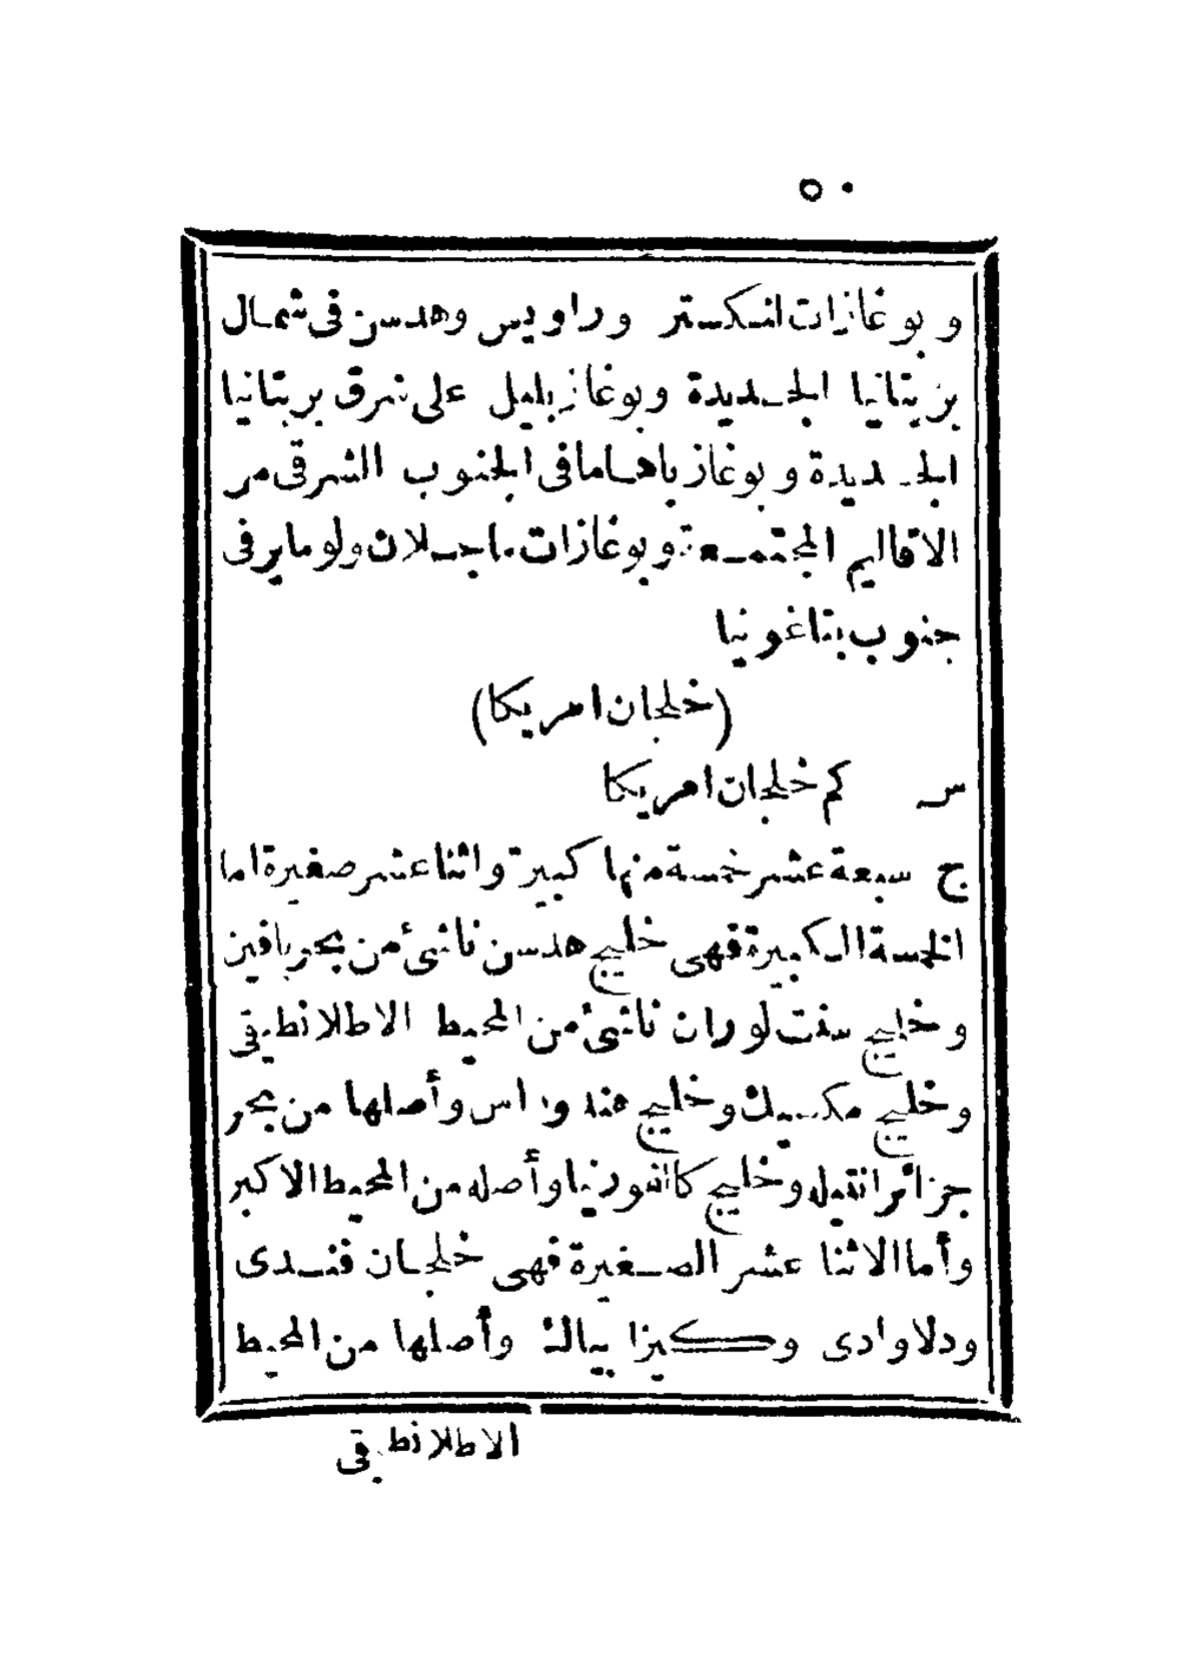 ٥٠
وبوغازات لنكستر وراويس وهدسن فى شمال
بريتانيا الجديدة وبوغاز بليل على شرق بريتانيا
الجديدة وبوغاز باهاما فى الجنوب الشرقى من
الاقاليم المجتمعة وبوغازات ماجلان ولوماير فى
جنوب بتاغونيا
(خلجان امريكا)
س كم خلجان امريكا
ج سبعة عشر خمسة منها كبيرة واثنا عشر صغيرة اما
الخمسة الكبيرة فهى خليج هدسن ناشئ من بحر بافين
وخليج سنت لوران ناشئ من المحيط الاطلانطيقى
وخليج مكسيك وخليج هندوراس وأصلها من بحر
جزائر انتيله وخليج كالفورنيا وأصله من المحيط الاكبر
وأما الاثنا عشر الصغيرة فهى خلجان فندى
ودلاوادى وكيزابياك وأصلها من المحيط
الاطلانطيقى